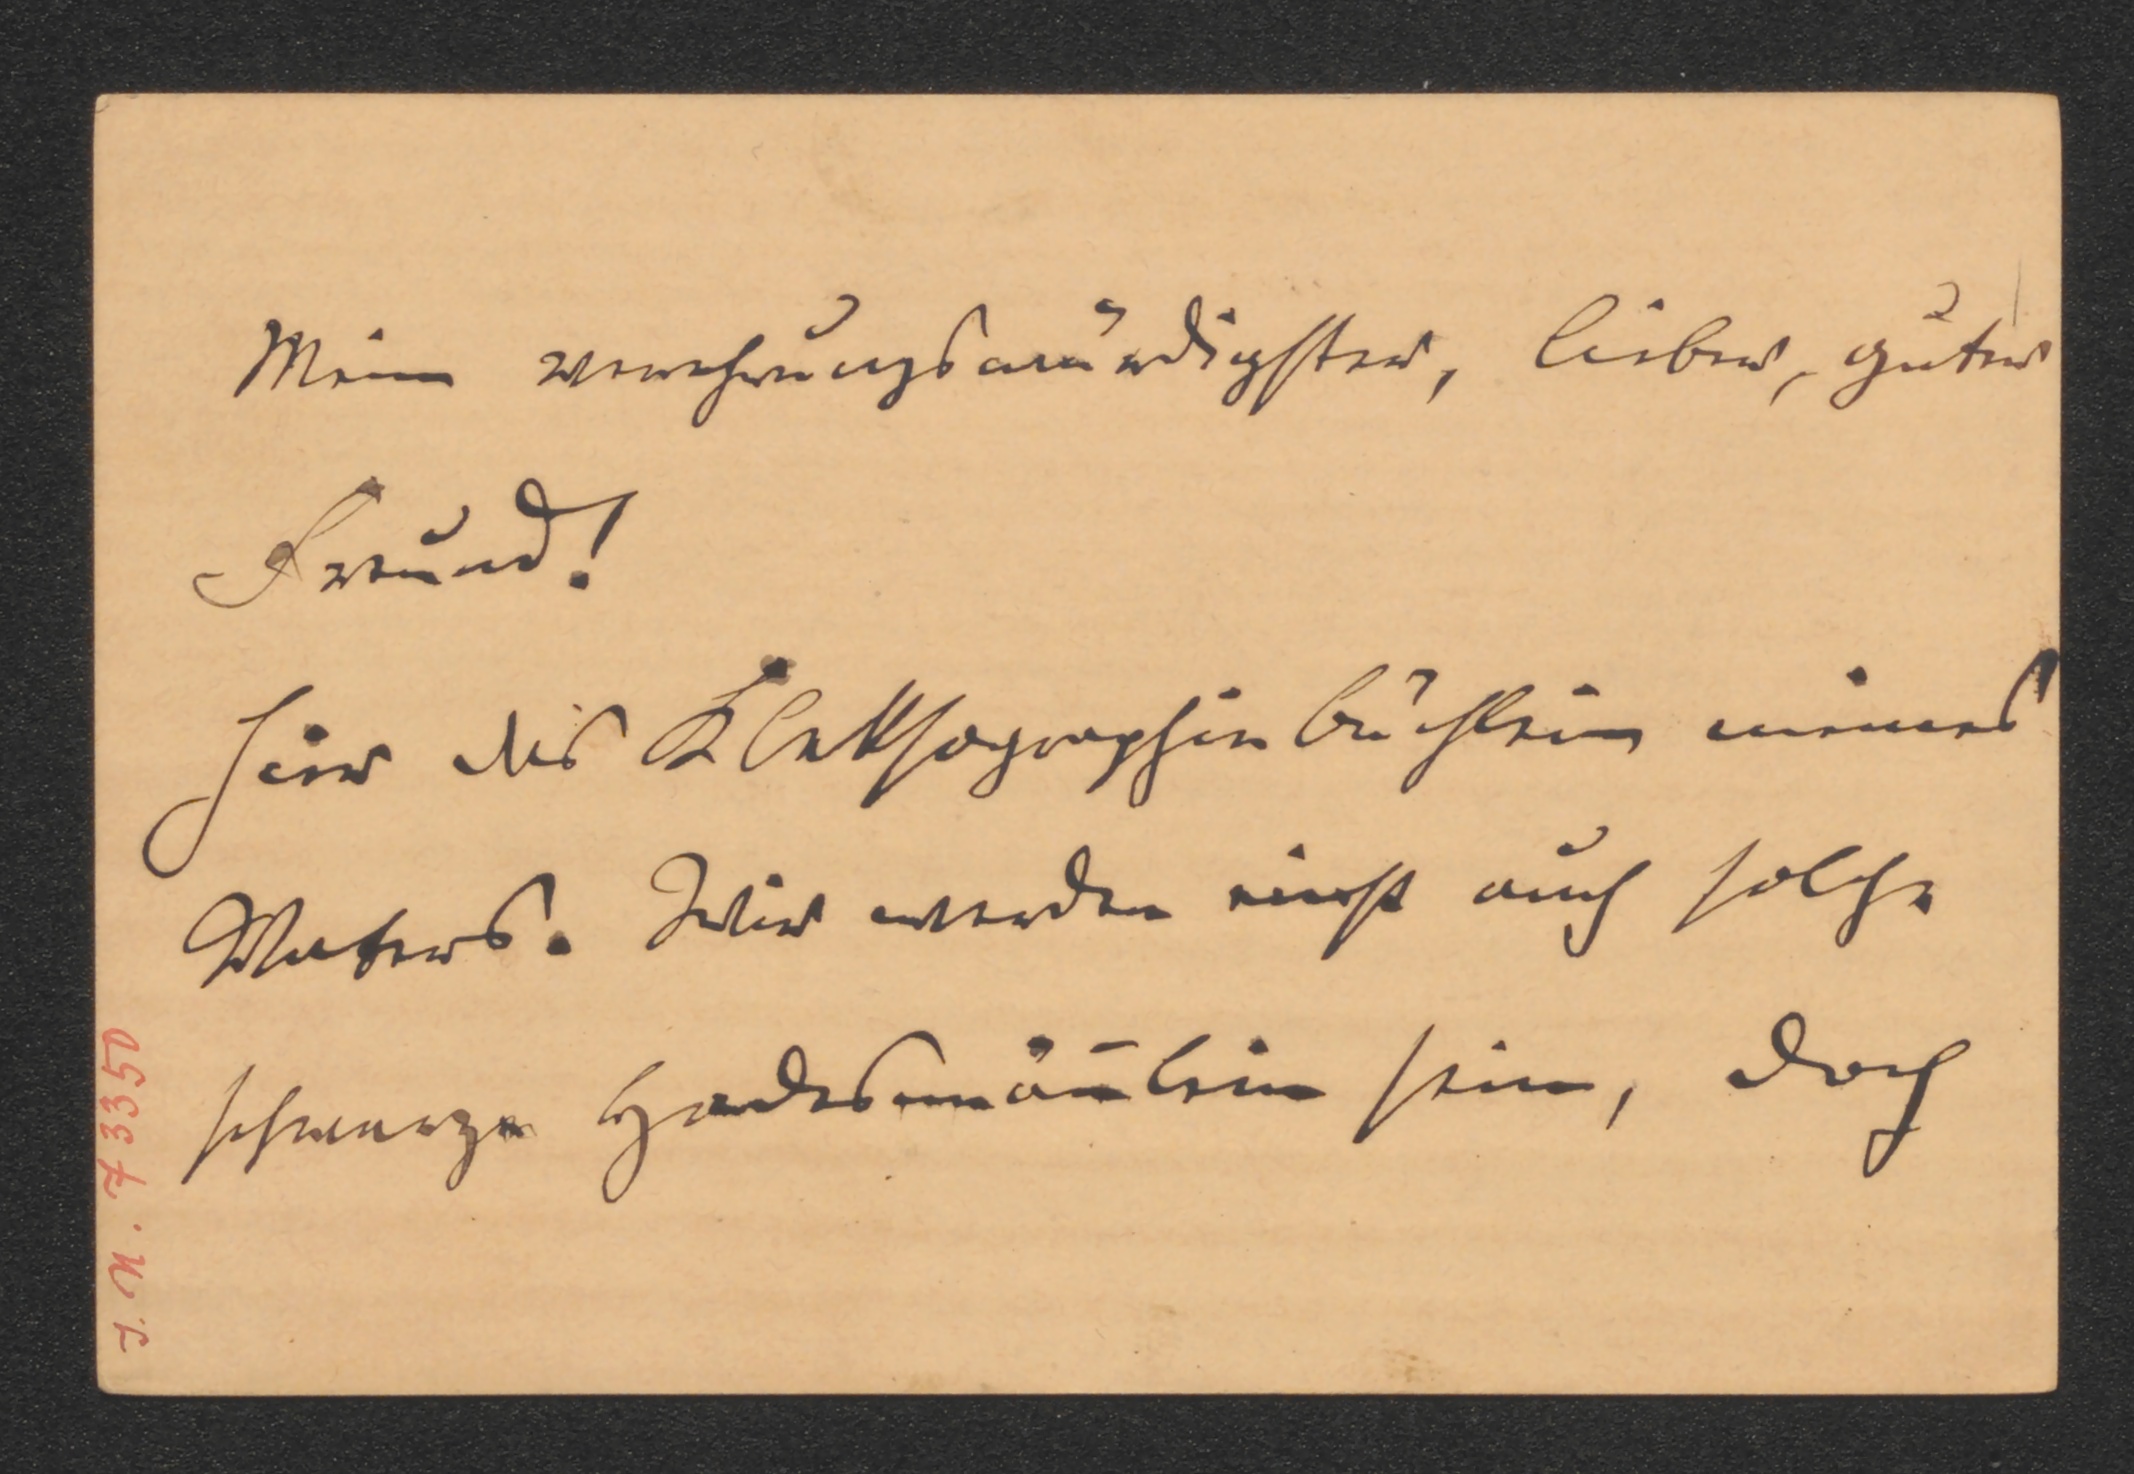 Mein verehrungswürdigster, lieber, guter
Freund!
Hier das Kleksographienbüchlein meines
Vaters. Wir werden einst auch solche
schwarze Hadesmäulein sein, doch
I. N. 73350